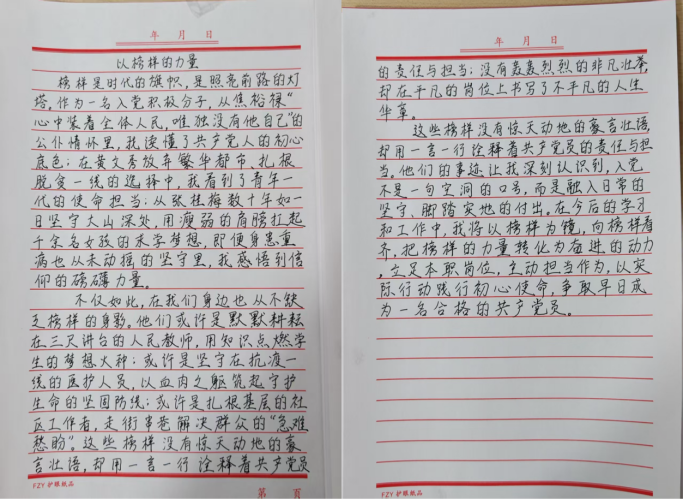 年 月 日
以榜样的力量
榜样是时代的旗帜，是照亮前路的灯
塔，作为一名入党积极分子，从焦裕禄“
心中装着全体人民，唯独没有他自己”的
公仆情怀里，我读懂了共产党人的初心
底色；在黄文秀放弃繁华都市，扎根
脱贫一线的选择中，我看到了青年一
代的使命担当；从张桂梅数十年如一
日坚守大山深处，用瘦弱的肩膀扛起
千余名女孩的求学梦想，即便身患重
病也从未动摇的坚守里，我感悟到信
仰的磅礴力量。
不仅如此，在我们身边也从不缺
乏榜样的身影。他们或许是默默耕耘
在三尺讲台的人民教师，用知识点燃学
生的梦想火种；或许是坚守在抗疫一
线的医护人员，以血肉之躯筑起守护
生命的坚固防线；或许是扎根基层的社
区工作者，走街串巷解决群众的“急难
愁盼”。这些榜样没有惊天动地的豪
言壮语，却用一言一行诠释着共产党员
FZY 护眼纸品
第 页
年 月 日
的责任与担当；没有轰轰烈烈的非凡壮举，
却在平凡的岗位上书写了不平凡的人生
华章。
这些榜样没有惊天动地的豪言壮语，
却用一言一行诠释着共产党员的责任与担
当。他们的事迹让我深刻认识到，入党
不是一句空洞的口号，而是融入日常的
坚守、脚踏实地的付出。在今后的学习
和工作中，我将以榜样为镜，向榜样看
齐，把榜样的力量转化为奋进的动力
，立足本职岗位，主动担当作为，以实
际行动践行初心使命，争取早日成
为一名合格的共产党员。
FZY 护眼纸品